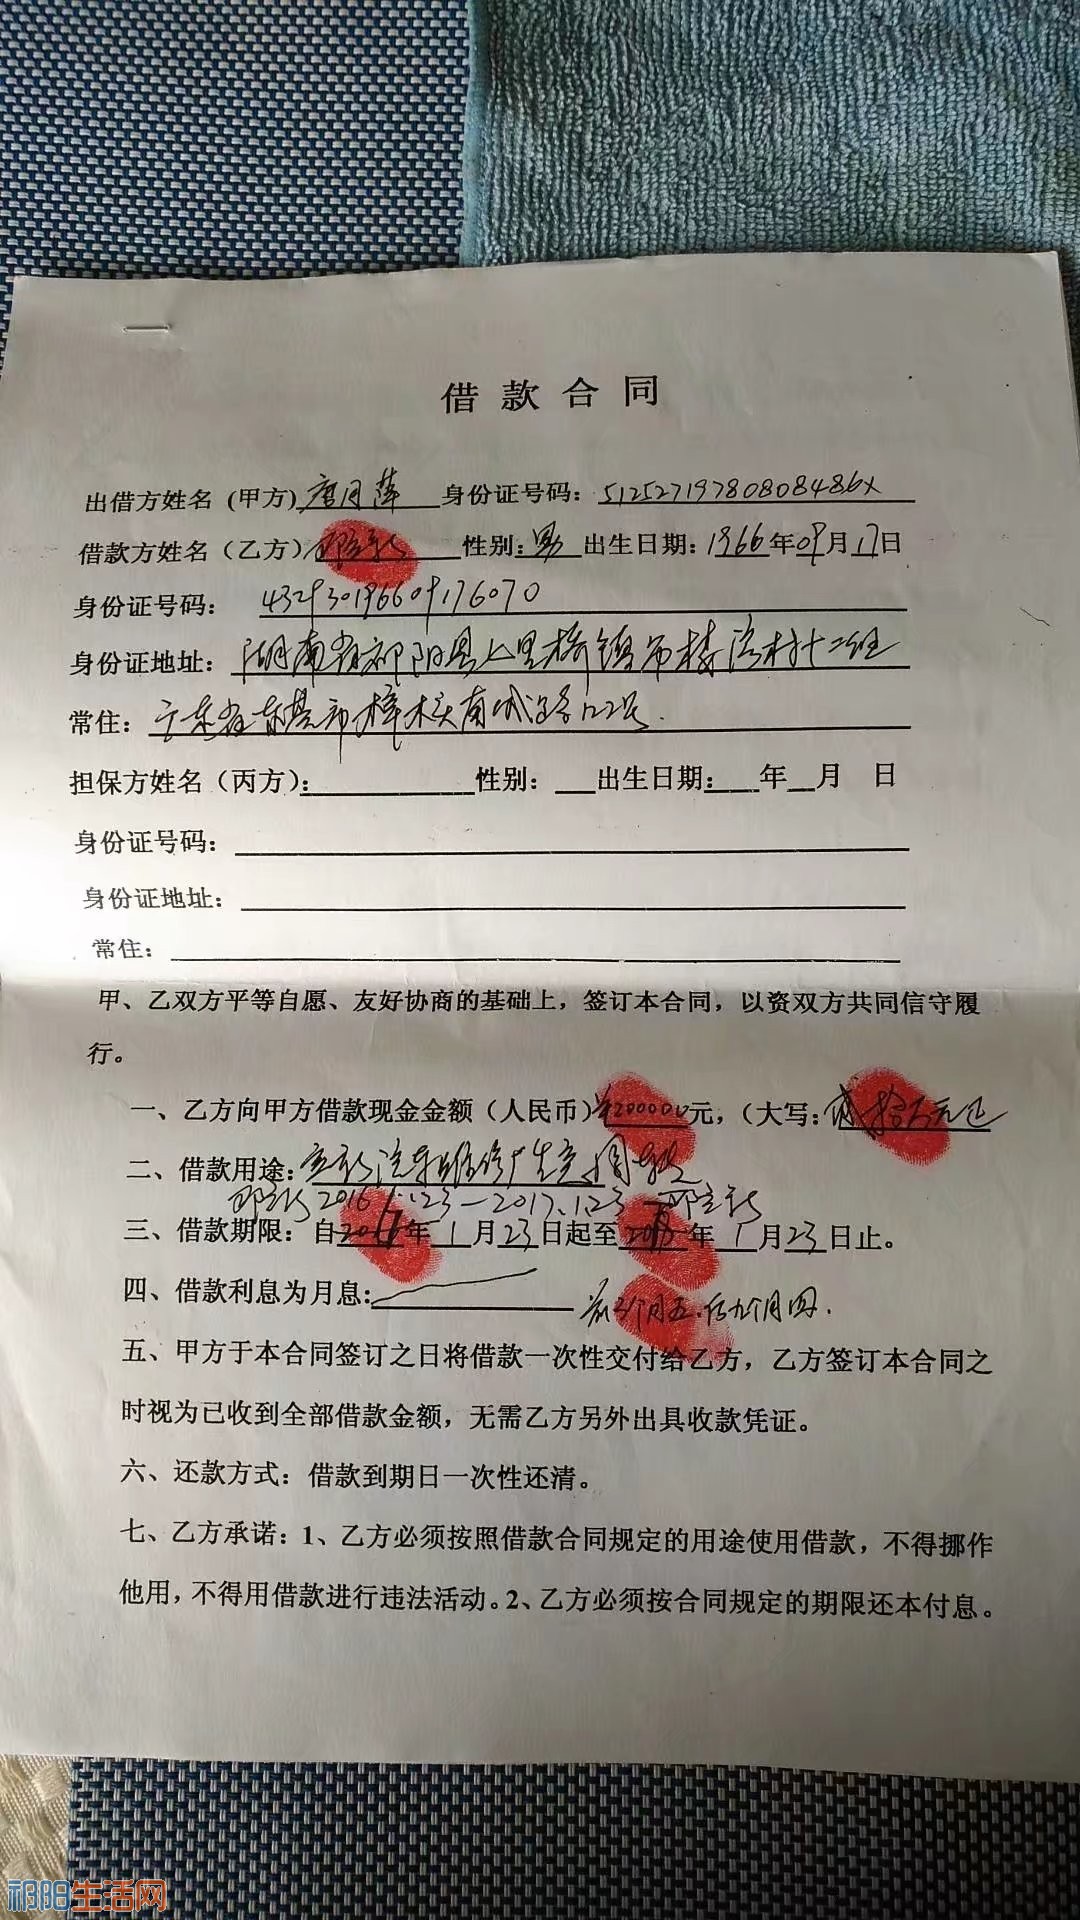 借款合同
出借方姓名（甲方）唐月萍 身份证号码：51252719780808486X
借款方姓名（乙方） 性别：男 出生日期：1966年09月17日
身份证号码：432930196609176070
身份证地址：湖南省祁阳县七里桥镇 村十二组
常住：广东省东莞市樟木头南城 号.
担保方姓名（丙方）： 性别： 出生日期： 年 月 日
身份证号码：
身份证地址：
常住：
甲、乙双方平等自愿、友好协商的基础上，签订本合同，以资双方共同信守履
行。
一、乙方向甲方借款现金金额（人民币）¥200000元，（大写：贰拾万元正
二、借款用途： 汽车维修厂生产周转
2016.1.23—2017.1.23
三、借款期限：自 年1月23日起至 年1月23日止。
四、借款利息为月息： 前3个月五.后九个月四.
五、甲方于本合同签订之日将借款一次性交付给乙方，乙方签订本合同之
时视为已收到全部借款金额，无需乙方另外出具收款凭证。
六、还款方式：借款到期日一次性还清。
七、乙方承诺：1、乙方必须按照借款合同规定的用途使用借款，不得挪作
他用，不得用借款进行违法活动。2、乙方必须按合同规定的期限还本付息。
祁阳生活网